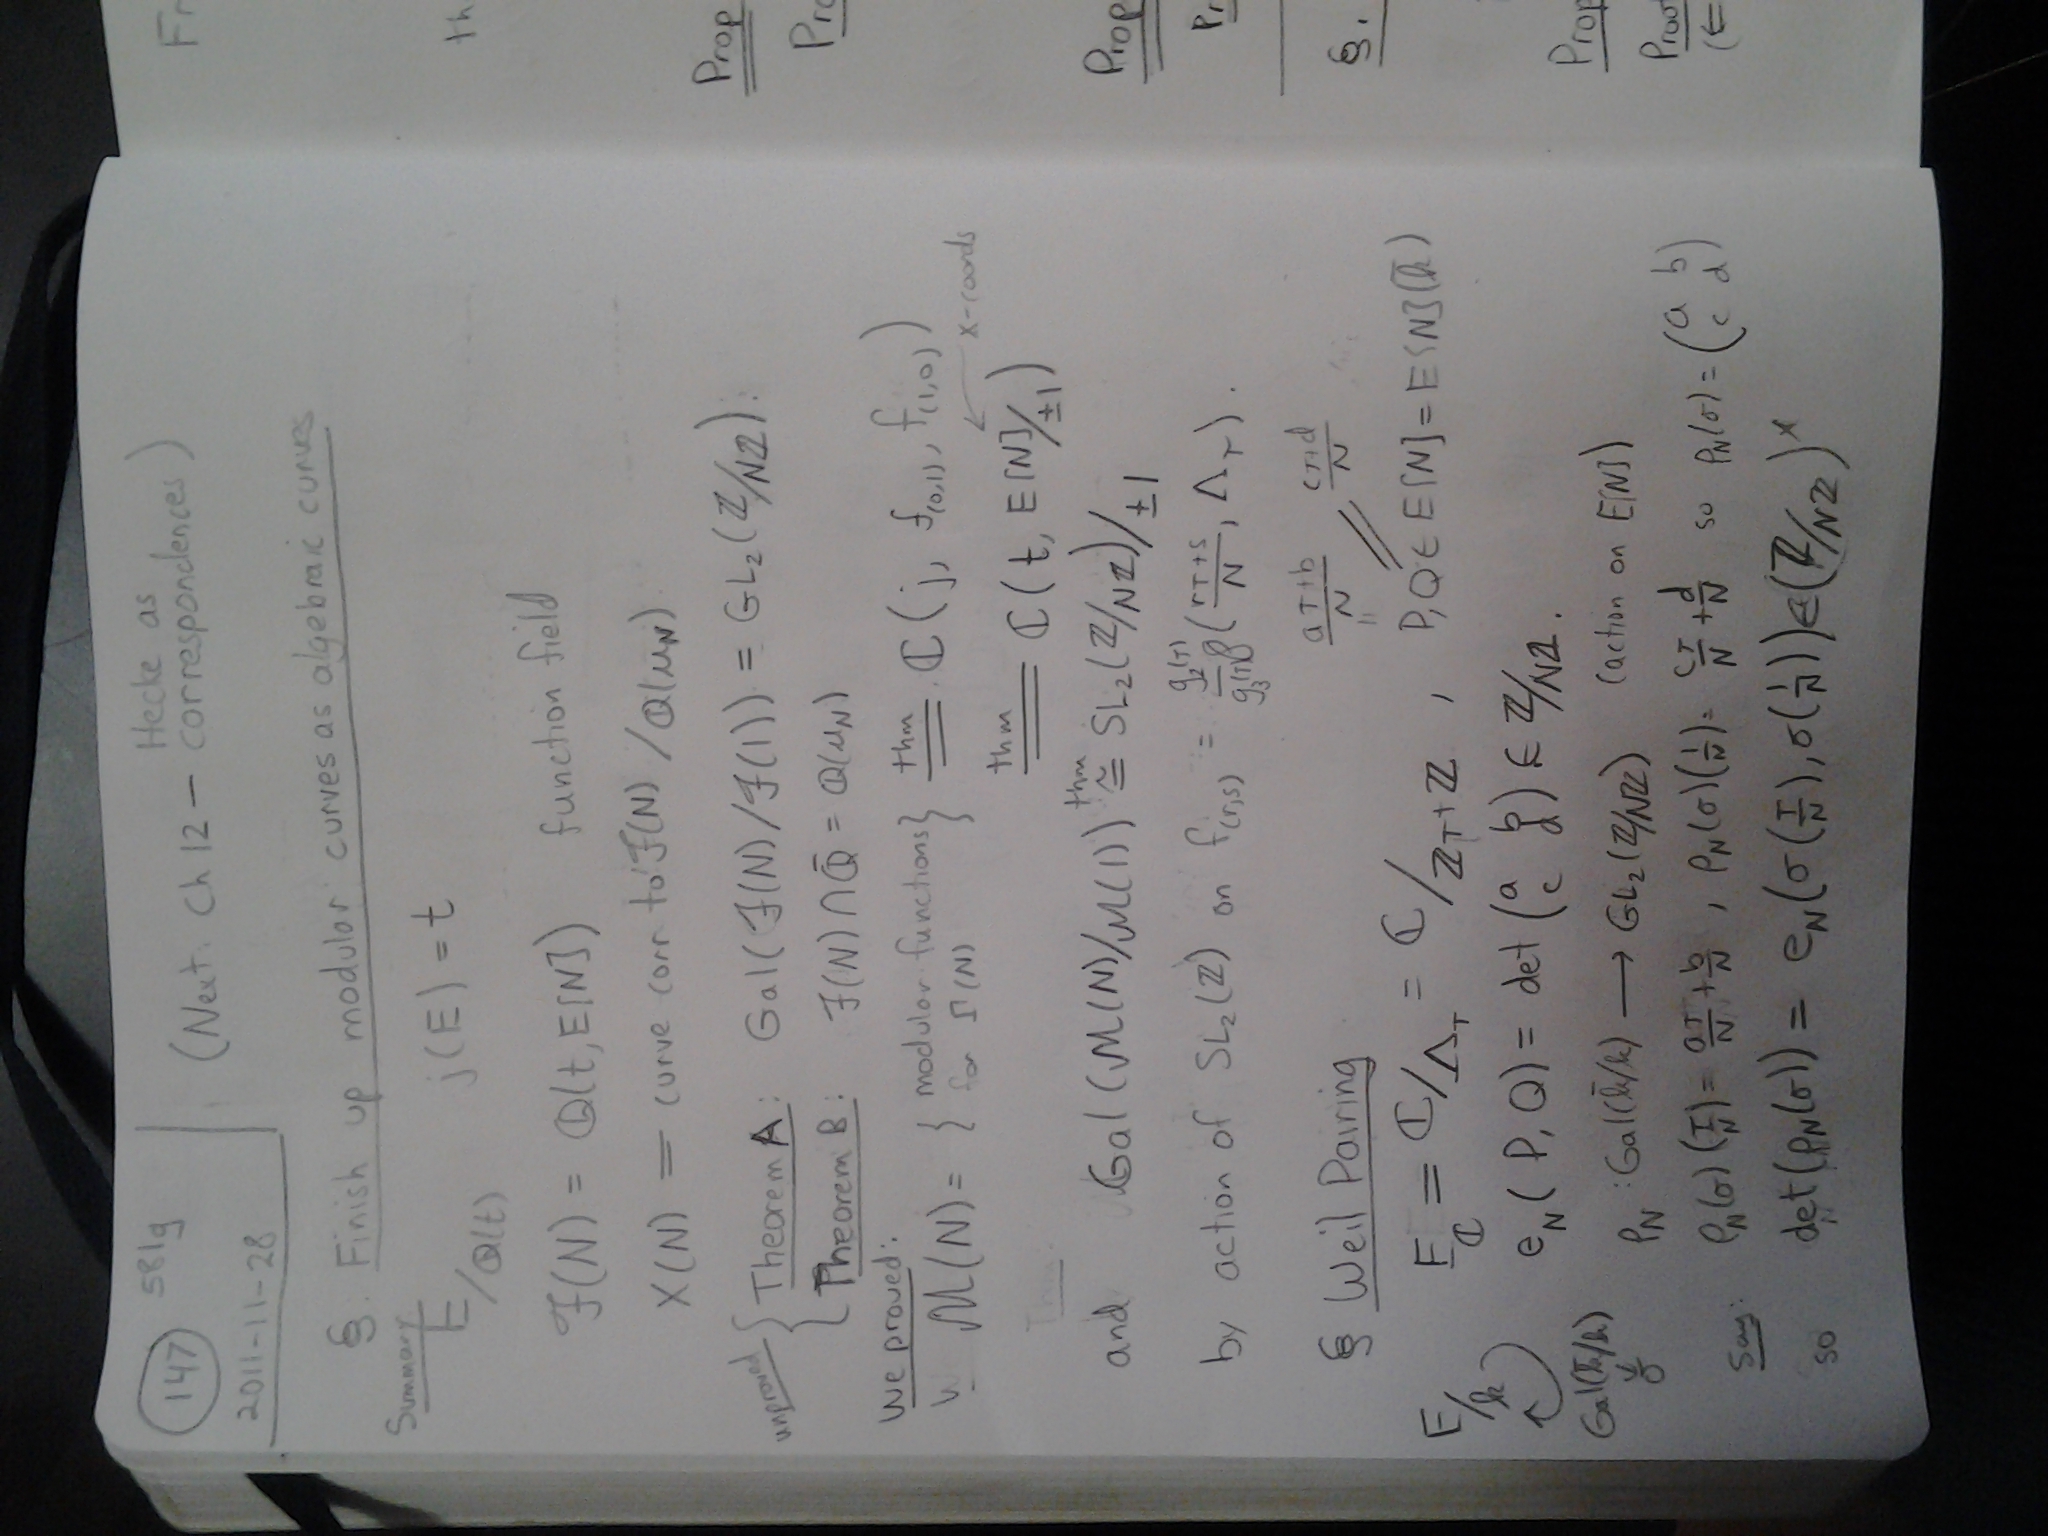 147 581g (Next: Ch 12 - Hecke as correspondences)
2011-11-28
§: Finish up modular curves as algebraic curves
Summary
E/ℚ(t) j(E) = t
ℱ(N) = ℚ(t, E[N]) function field
X(N) = curve corr to ℱ(N) / ℚ(μ_N)
unproved { Theorem A: Gal(ℱ(N)/ℱ(1)) = GL₂(ℤ/Nℤ):
Theorem B: ℱ(N) ∩ ℚ̄ = ℚ(μ_N)
We proved:
ℳ(N) = { modular functions for Γ(N) } =^{thm} ℂ(j, f_(0,1), f_(1,0))
=^{thm} ℂ(t, E[N]/±1) x-coords
and Gal(ℳ(N)/ℳ(1)) ≅^{thm} SL₂(ℤ/Nℤ)/±1
by action of SL₂(ℤ) on f_(r,s) = g₂(τ)/g₃(τ) ℘((rτ+s)/N, Λ_τ).
§ Weil Pairing
(aτ+b)/N (cτ+d)/N
E/k E_ℂ = ℂ/Λ_τ = ℂ/ℤτ+ℤ , P, Q ∈ E[N] = E[N](k̄)
e_N(P, Q) = det (a b c d) ∈ ℤ/Nℤ.
Gal(k̄/k) ρ_N : Gal(k̄/k) → GL₂(ℤ/Nℤ) (action on E[N])
σ
Say: ρ_N(σ)(τ/N) = aτ/N + b/N , ρ_N(σ)(1/N) = cτ/N + d/N so ρ_N(σ) = (a b c d)
so det(ρ_N(σ)) = e_N(σ(τ/N), σ(1/N)) ∈ (ℤ/Nℤ)^×
Fr
th
Prop
Pro
Prop
Pr
§.
Prop
Proof
(⇐